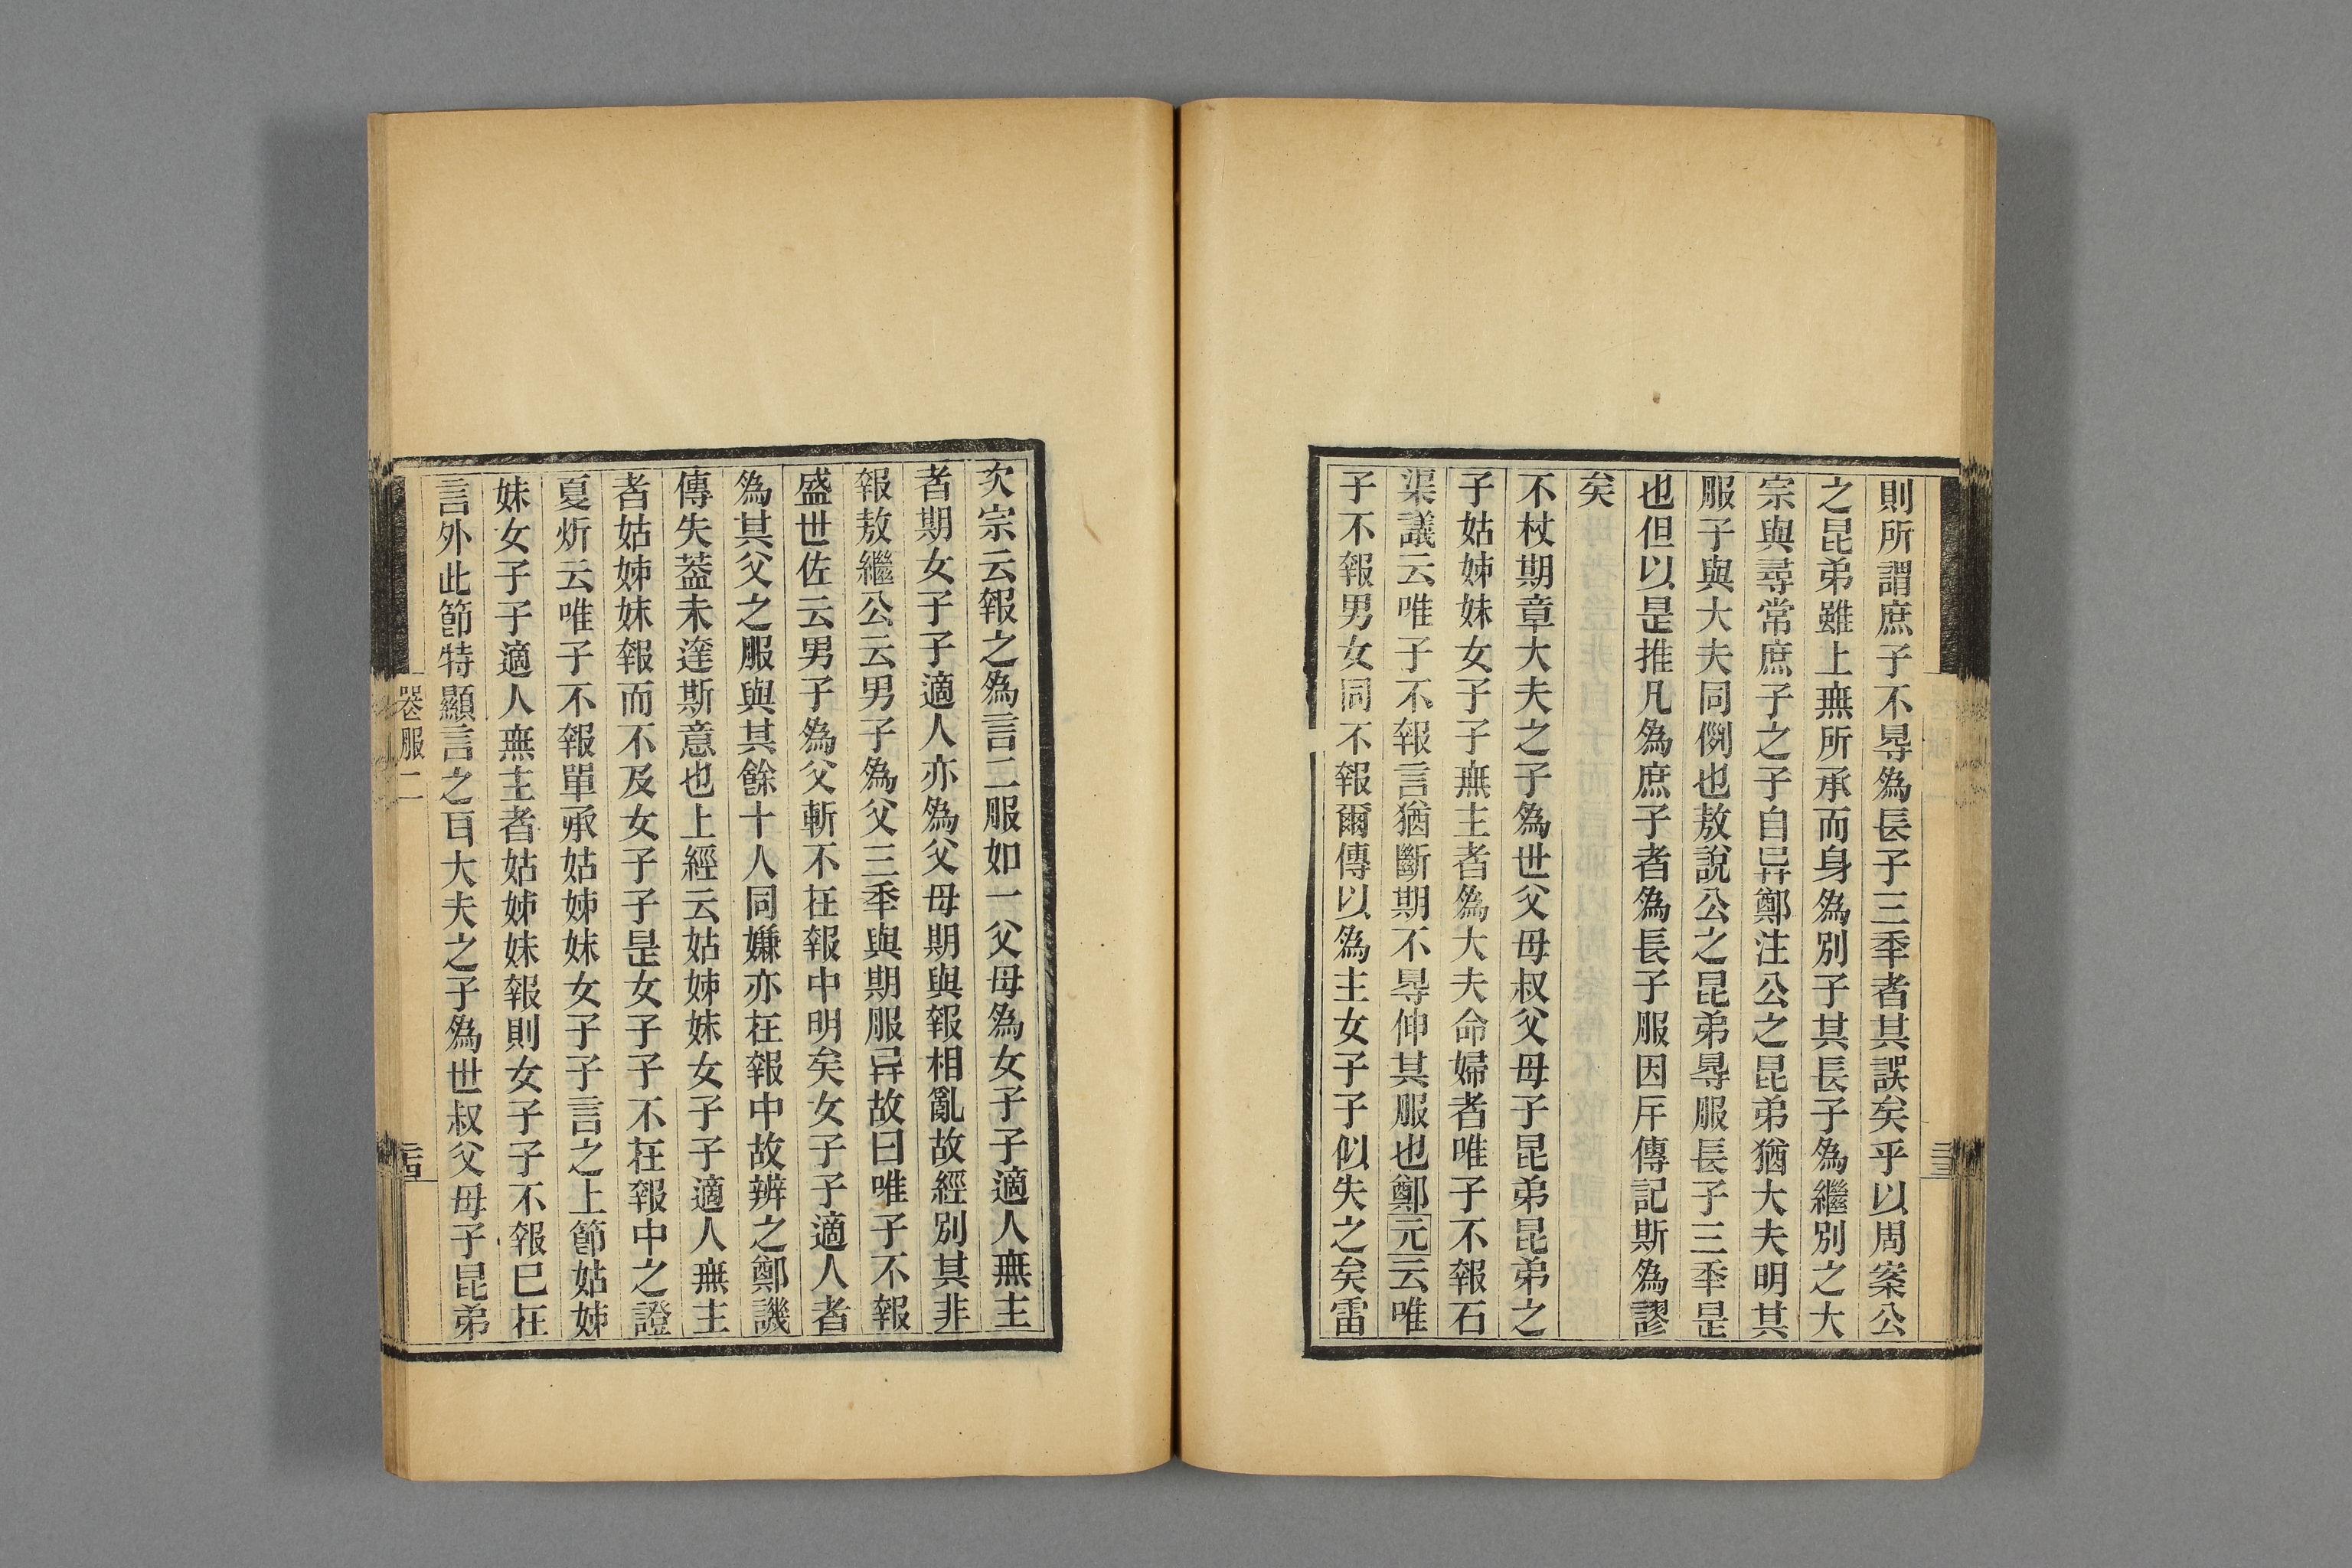 則所謂庶子不㝵為長子三秊者其誤矣乎以周案公
之昆弟雖上無所承而身為別子其長子為繼別之大
宗與尋常庶子之子自异鄭注公之昆弟猶大夫明其
服子與大夫同例也敖說公之昆弟㝵服長子三秊是
也但以是推凡為庶子者為長子服因斥傳記斯為謬
矣
不杖期章大夫之子為世父母叔父母子昆弟昆弟之
子姑姊妹女子子無主者為大夫命婦者唯子不報石
渠議云唯子不報言猶斷期不㝵伸其服也鄭元云唯
子不報男女同不報爾傳以為主女子子似失之矣雷
次宗云報之為言二服如一父母為女子子適人無主
者期女子子適人亦為父母期與報相亂故經別其非
報敖繼公云男子為父三秊與期服异故曰唯子不報
盛世佐云男子為父斬不在報中明矣女子子適人者
為其父之服與其餘十人同嫌亦在報中故辨之鄭譏
傳失葢未達斯意也上經云姑姊妹女子子適人無主
者姑姊妹報而不及女子子是女子子不在報中之證
夏炘云唯子不報單承姑姊妹女子子言之上節姑姊
妹女子子適人無主者姑姊妹報則女子子不報已在
言外此節特顯言之耳大夫之子為世叔父母子昆弟
喪服二